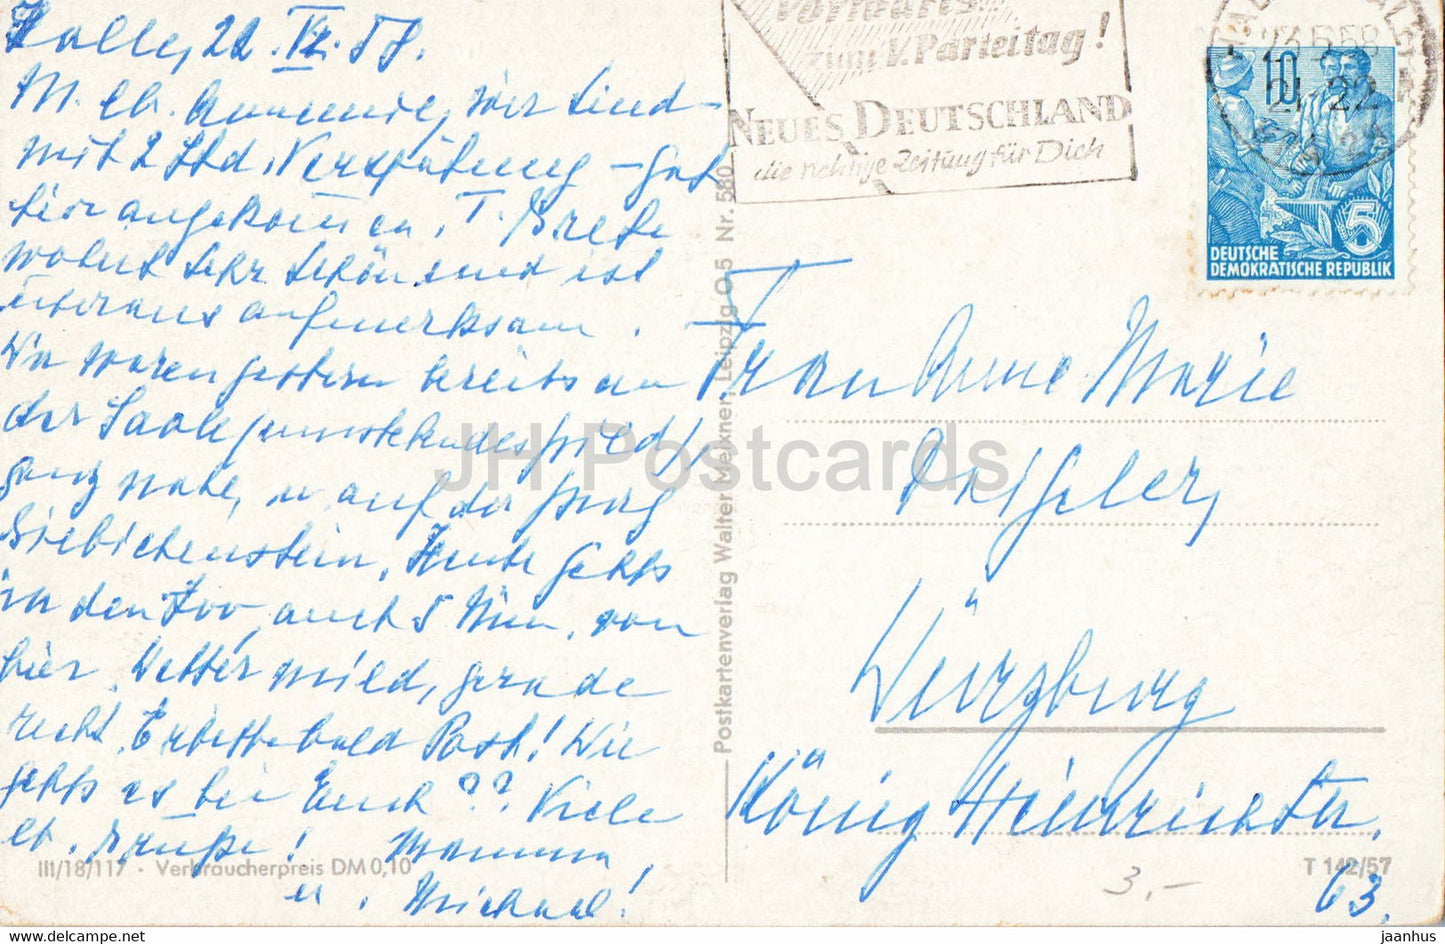 Halle, 22. VI. 58.
M. lb. Annemie, wir sind
mit 2 Std. Verspätung
hier angekommen. T. Grete
wohnt sehr schön und ist
überaus aufmerksam.
Wir waren gestern bereits an
der Saale,
ganz nahe, u. auf der Burg
Giebichenstein. Heute gehts
in den Zoo, auch 5 Min. von
hier. Wetter mild, gerade
recht. Erbitte bald Post! Wie
gehts es bei Euch?? Viele
lb. Grüße! Mamma
u. Michael!
III/18/117 · Verbraucherpreis DM 0,10
Postkartenverlag Walter Meixner, Leipzig O 5 Nr. 580
Vorwärts
zum V. Parteitag!
NEUES DEUTSCHLAND
die richtige Zeitung für Dich
10
5
DEUTSCHE
DEMOKRATISCHE REPUBLIK
Frau Anne-Marie
Würzburg
König Heinrichstr.
63.
T 142/57
3,-
JH Postcards
www.delcampe.net
jaanhus